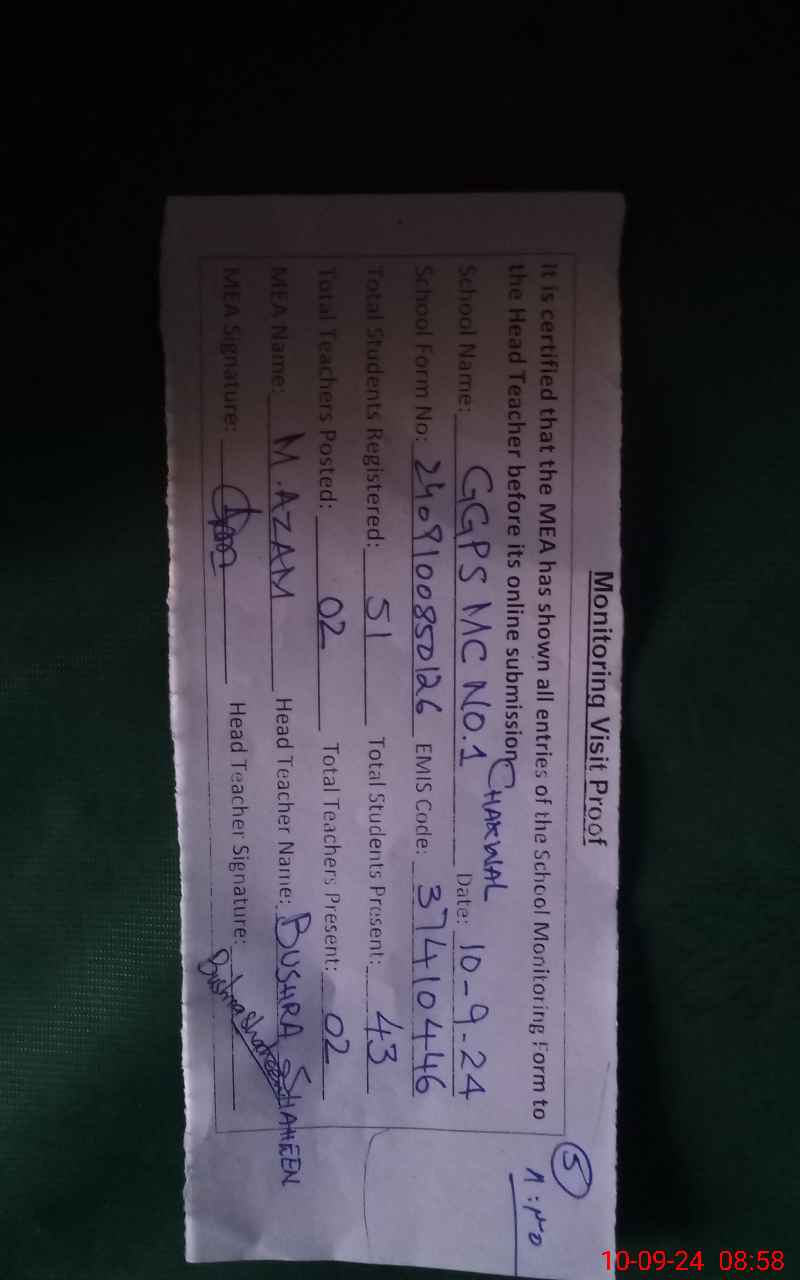 Monitoring Visit Proof
5
۸:۳۵
It is certified that the MEA has shown all entries of the School Monitoring Form to
the Head Teacher before its online submission
School Name: GGPS MC NO.1 CHAKWAL Date: 10-9-24
School Form No: 2409100850126 EMIS Code: 37410446
Total Students Registered: 51 Total Students Present: 43
Total Teachers Posted: 02 Total Teachers Present: 02
MEA Name: M.AZAM Head Teacher Name: BUSHRA SHAHEEN
MEA Signature: Head Teacher Signature: Bushra Shaheen
10-09-24 08:58